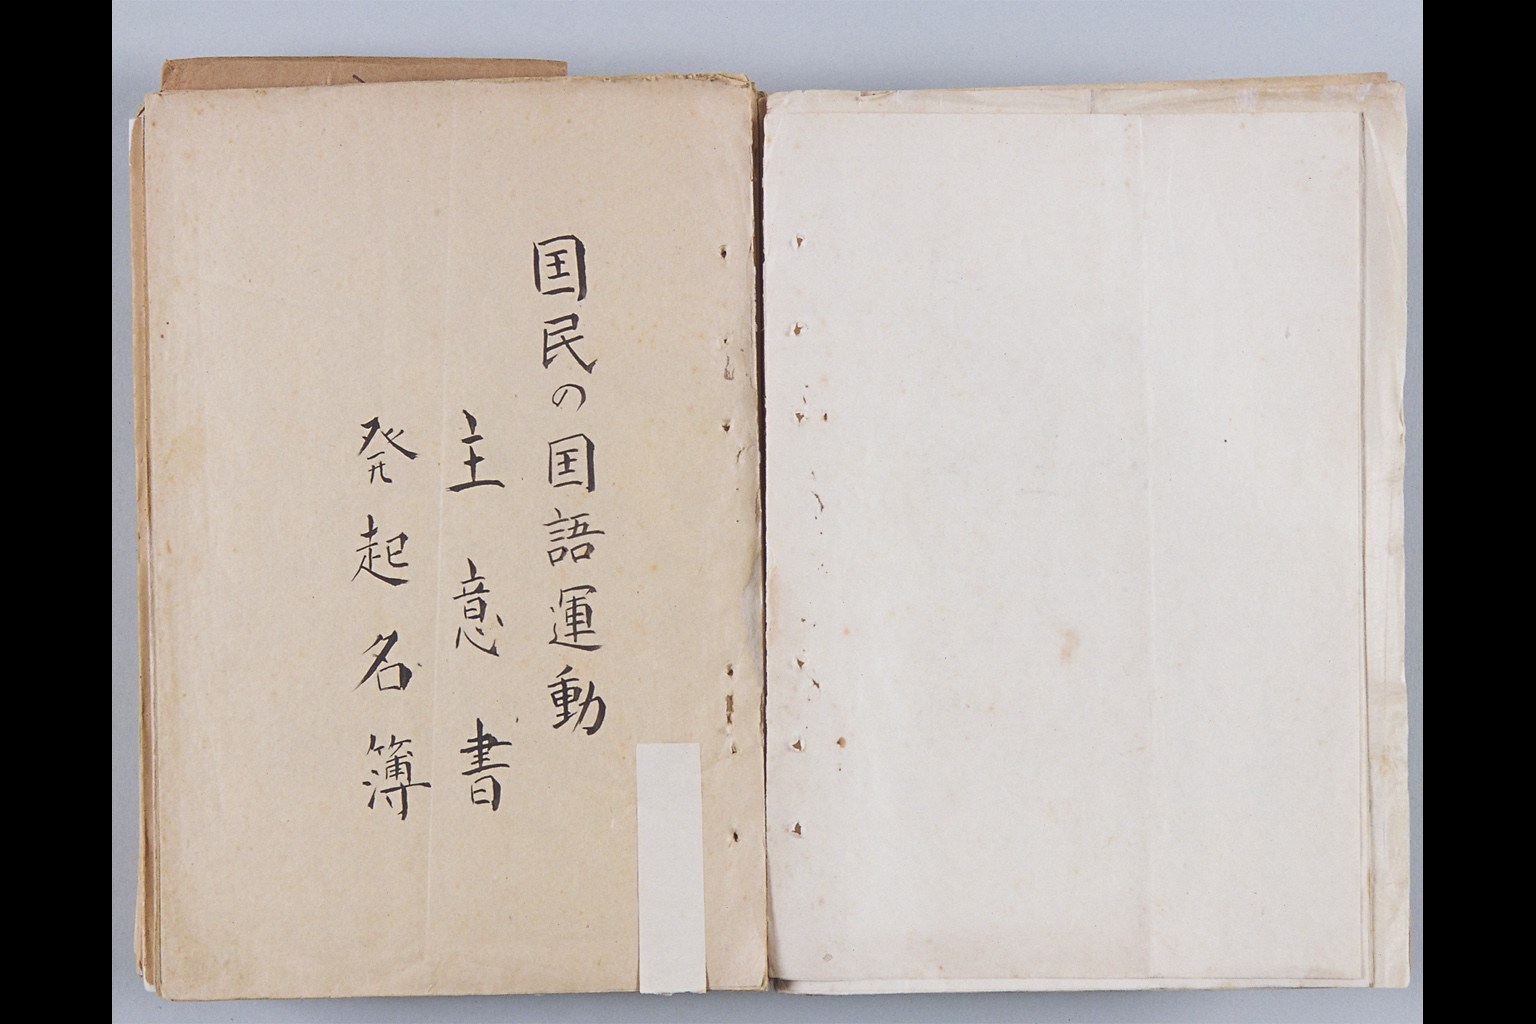 国民の国語運動
主意書
発起名簿